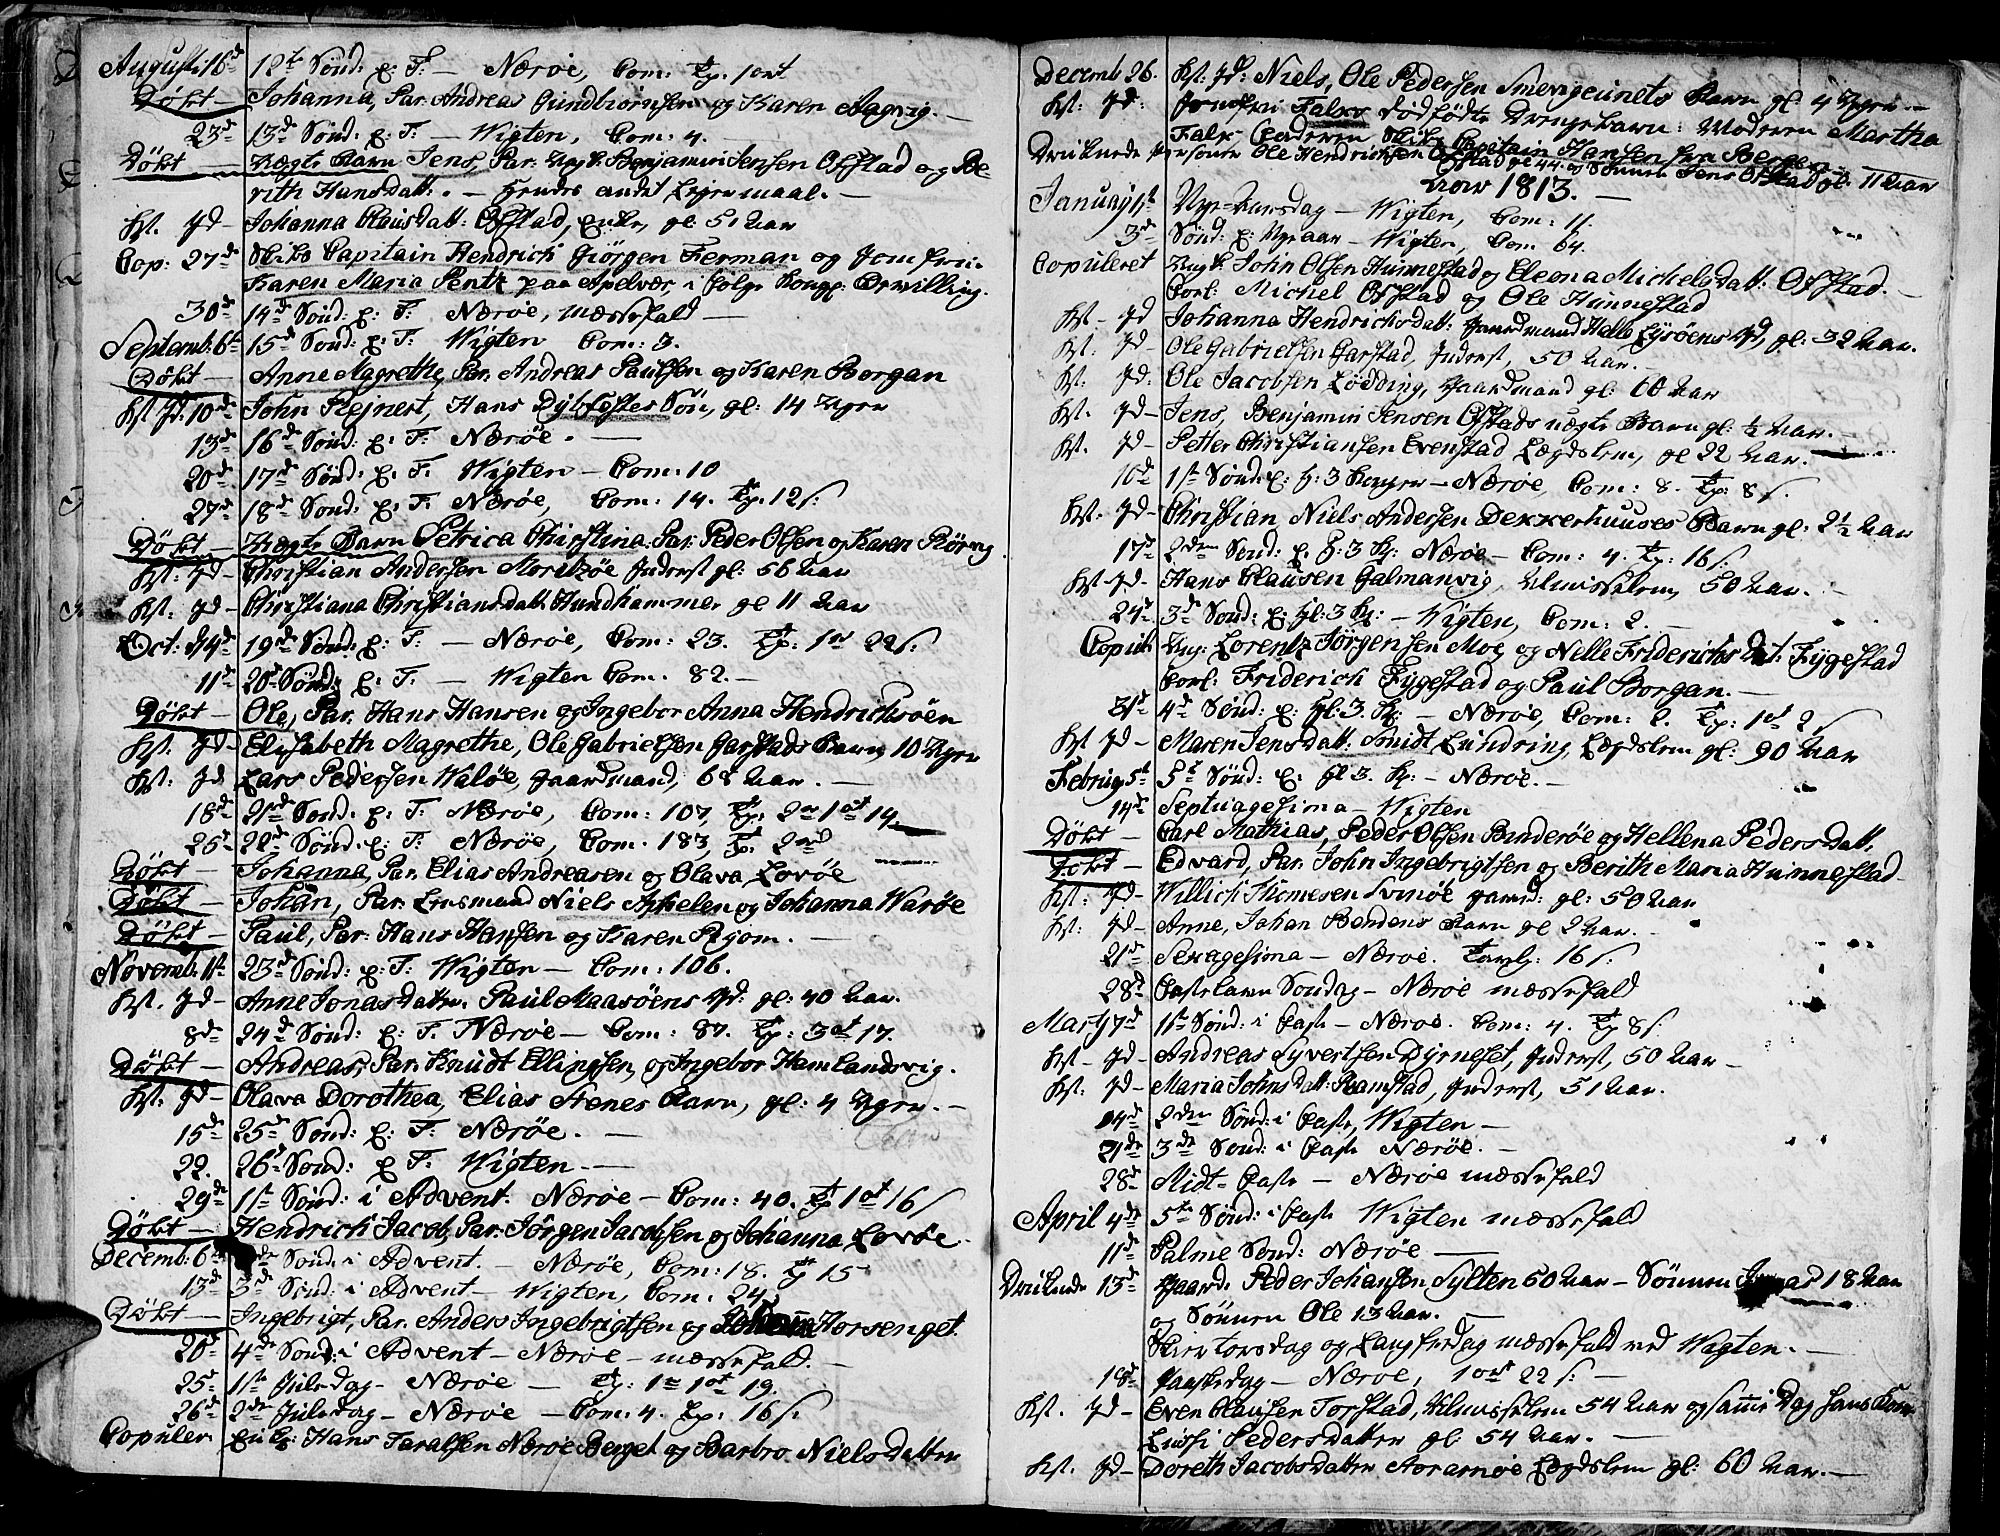 August: 16d 12te Sønd: p: T: — Nærøe, Com: Tp. 1 ort
Døbt — Johanna, Par. Andreas Gundbiørnsen og Karen Aagvig. —
23d 13d Sønd: p: T: — Wigten, Com: 4.
Døbt — Uægte Barn Jens, Par. Ungk. Benjamin Jensen Ofstad og Be
rith Hansdatt: . — Hendes andet Lejermaal. —
Kst. Jd — Johanna Clausdatt: Ofstad, Enke, gl: 51 Aar
Cop: 27d Skibs Capitain Hendrich Giørgen Ferman og Jomfrue
Karen Maria Pentz paa Apelvær i følge Kongl: Bevilling.
30d 14d Sønd: p: T: Nærøe, messefald —
Septemb: 6te 15d Sønd: p: T: Wigten Com: 3.
Døbt — Anne Magrethe, Par. Andreas Paulsen og Karen Borgan
Kst. Jd. 10d John Rejnert, Hans Dybfestes Søn, gl: 14 Uger
13d 16d Sønd: p: T: Nærøe. —
20d 17d Sønd: p: T. Wigten — Com: 10
27d 18d Sønd: p: T. Nærøe, Com: 14. Tp. 12 s:
Døbt — Uægte Barn Petrica Christina. Par: Peder Olsen og Karen Rørvig
Kst: Jd — Christian Andersen Moritzøe Inderst gl: 56 Aar
Kst: Jd — Christiana Christiansdatt: Hundhammer gl 11 Aar
Oct: 4d 19d Sønd: p: T: — Nærøe, Com: 23. Tp: 1 ort 22 s:
11d 20d Sønd: p: T. — Wigten Com. 82. —
Døbt — Ole, Par. Hans Hansen og Ingebor Anna Hendrichsøen
Kst. Jd — Elisabeth Magrethe, Ole Gabrielsen Garstads Barn, 10 Uger
Kst: Jd Lars Pedersen Waløe, Gaardmand, 68 Aar. —
18d 21d Sønd: p: T. Nærøe, Com: 107, Tp: 2 1 ort 14
25d 22d Sønd: p: T: Nærøe, Com. 183, Tp. 2
Døbt — Johanna, Par. Elias Andreasen og Olava Lovøe
Døbt — Johan, Par. Lensmand Niels Aphelen og Johanna Warøe
Døbt — Paul, Par: Hans Hansen og Karen Ryom. —
Novemb: 1te 23d Sønd: p: T: Wigten — Com: 106.
Kst. Jd — Anne Jonas Datter. Paul Maasøens Jd: gl: 40 Aar.
8d 24d Sønd: p: T. Nærøe — Com: 87. Tp: 3 ort 17.
Døbt — Andreas, Par. Knudt Ellingsen, og Ingebor Hamlandsvig.
Kst: Jd — Olava Dorothea, Elias Stenes Barn, gl: 4 Uger. —
15d 25d Sønd: p: T: Nærøe. —
22. 26d Sønd: p T: Wigten. —
29d 1te Sønd: i Advent: Nærøe — Com: 40. Tp 1 ort 16 s
Døbt — Hendrich Jacob, Par. Jørgen Jacobsen og Johanna Lovøe.
Decemb: 6te Sønd: i Advent. — Nærøe, Com: 18. Tp 15
13d 3d Sønd: i Advent — Wigten, Com. 24.
Døbt — Ingebrigt, Par. Anders Ingebrigtsen og Horsenget.
20d 4de Sønd: i Advent — Nærøe — messefald. —
25d 1te Juledag — Nærøe — Tp: 1 1 ort 19.
26d 2den Juledag — Nærøe — Com: 4. Tp: 16 s:
Copuler Hans Taralsen Nærøe Berget og Barbro Niels Datter
Decemb 26. Kst. Jd: Niels, Ole Pedersen Smevigeunets Barn gl: 4 Uger —
Kst: Jd: Jomfru Falks dødfødte Drengebarn: Moderen Martha
Falk Faderen, Skibs Capitain Hansen fra Bergen —
Druknede Ole Hendrichsen Ofstad gl 44. og Sønnen Jens Ofstad gl. 11 Aar
Aar 1813. —
January 1te Nye-Aarsdag — Wigten, Com: 11.
3d Sønd: p: Nyeaar — Wigten, Com 64.
Copuleret Ungk. John Olsen Hunnestad og Eleona Michelsdatt: Ofstad. —
Corl: Michel Ofstad og Ole Hunnestad
Kst — Jd Johanna Hendrichsdatt: Gaardmand Helle Lysøens Jd, gl: 32 Aar.
Kst: Jd — Ole Gabrielsen Garstad, Inderst, 50 Aar. —
Kst. Jd: Ole Jacobsen Lødding, Gaardmand gl: 60 Aar
Kst. Jd — Jens, Benjamin Jensen Ofstads uægte Barn gl: ½ Aar.
Kst. Jd — Petter Christiansen Evenstad Lægdslem, gl 22 Aar.
10d 1te Sønd: p: H: 3 Konger — Nærøe, Com: 8. Tp: 8 s.
Kst. Jd — Christian, Niels Andersen Dekkerhuuses Barn gl: 2½ Aar
17d 2den Sønd: p. H: 3 K: Nærøe — Com: 4. Tp: 16 s:
Kst — Jd — Hans Clausen Galmanvig, Almisselem, 50 Aar. —
24d 3d Sønd: p: Hl: 3 K: — Wigten, Com: 2. —
Copul: Ung: Lorentz Jørgensen Moe og Nelle Friderichs Dat: Fygestad
Corl: Friderich Fygestad og Paul Borgan. —
31d 4d Sønd: p: Hl: 3. K: — Nærøe, Com: 2. Tp: 1 ort 2 s
Kst Jd — Maren Jensdatt: Smidt Lundring, Lægdslem gl: 90 Aar
Febru: 7d 5te Sønd: p: Hl 3. K: — Nærøe. —
14d Septuagesima — Wigten
Døbt — Carl Mathias, Peder Olsen Binderøe og Hellena Pedersdatt.
Døbt — Edvard, Par. John Ingebrigtsen og Berith Maria Hunnestad
Kst: Jd — Willich Thomesen Svinøe Gaardm: gl: 50 Aar
Kst: Jd — Anne, Johan Bendens Barn gl 2 Aar. —
21d Sexagesima — Nærøe. Tavl: 16 s:
28d Fastelavns Søndag — Nærøe messefald
Marty 7d 1te Sønd: i Faste — Nærøe. Com: 4. Tp 8 s:
Kst — Jd — Andreas Syvertsen Dyrneset, Inderst, 50 Aar —
Kst. Jd — Maria Johnsdatt: Ramstad, Inderst, 51 Aar.
14d 2den Sønd: i Faste, Wigten —
21d 3de Sønd: i Faste Nærøe. —
28d Midt-Faste — Nærøe messefald
April 4de 5te Sønd: i Faste Wigten messefald
11d Palme Sønd: Nærøe —
Druknede 13d Gaardm. Peder Johansen Sylten 60 Aar — Sønnen 18 Aar
og Sønnen Ole 13 Aar. —
Skiertorsdag og Langfredag messefald ved Wigten. —
18d Paaskedag — Nærøe, 1 ort 22 s: —
Kst. Jd — Even Clausen Torstad, Almisselem 54 Aar og samme Dag hans Kone
Lussi Pedersdatter gl: 54 Aar. —
Kst. Jd — Doreth Jacobsdatter Aaramøe Lægdslem gl: 60 Aar. —